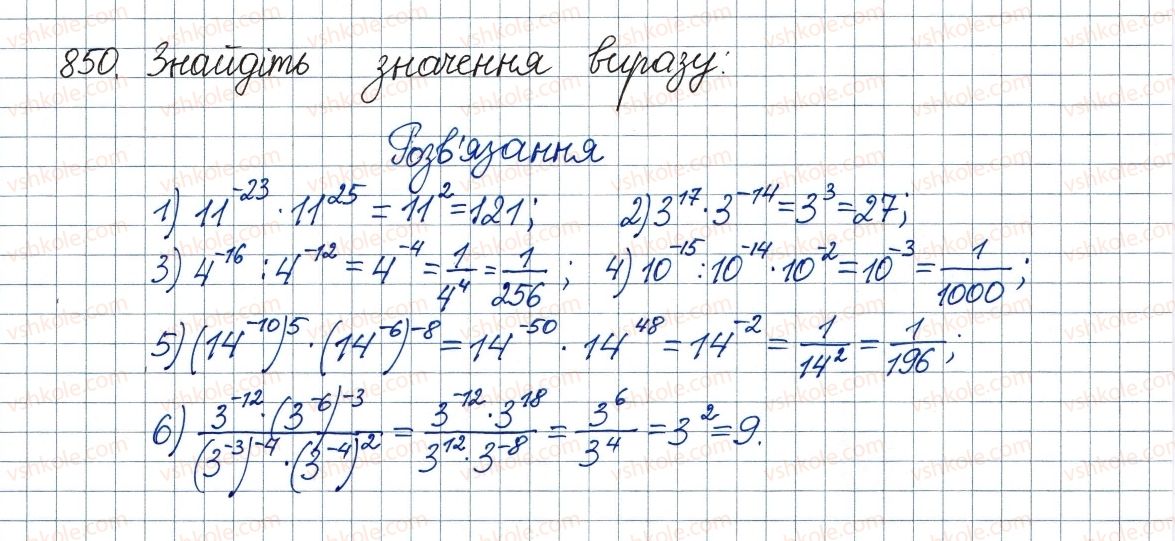 850. Знайдіть значення виразу:
Розв'язання
1) 11⁻²³ · 11²⁵ = 11² = 121; 2) 3¹⁷ · 3⁻¹⁴ = 3³ = 27;
3) 4⁻¹⁶ : 4⁻¹² = 4⁻⁴ = 1/4⁴ = 1/256; 4) 10⁻¹⁵ : 10⁻¹⁴ · 10⁻² = 10⁻³ = 1/1000;
5) (14⁻¹⁰)⁵ · (14⁻⁶)⁻⁸ = 14⁻⁵⁰ · 14⁴⁸ = 14⁻² = 1/14² = 1/196;
6) (3⁻¹² · (3⁻⁶)⁻³)/((3⁻³)⁻⁴ · (3⁻⁴)²) = (3⁻¹² · 3¹⁸)/(3¹² · 3⁻⁸) = 3⁶/3⁴ = 3² = 9.
vshkole.com